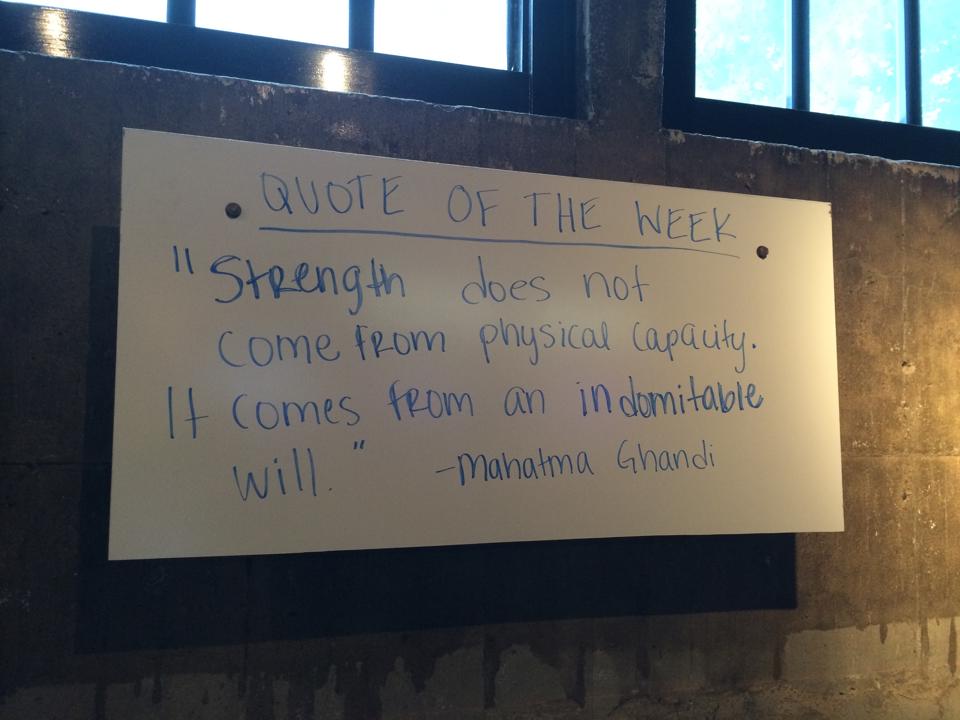 QUOTE OF THE WEEK
"Strength does not
come from physical capacity.
It comes from an indomitable
will." -Mahatma Ghandi